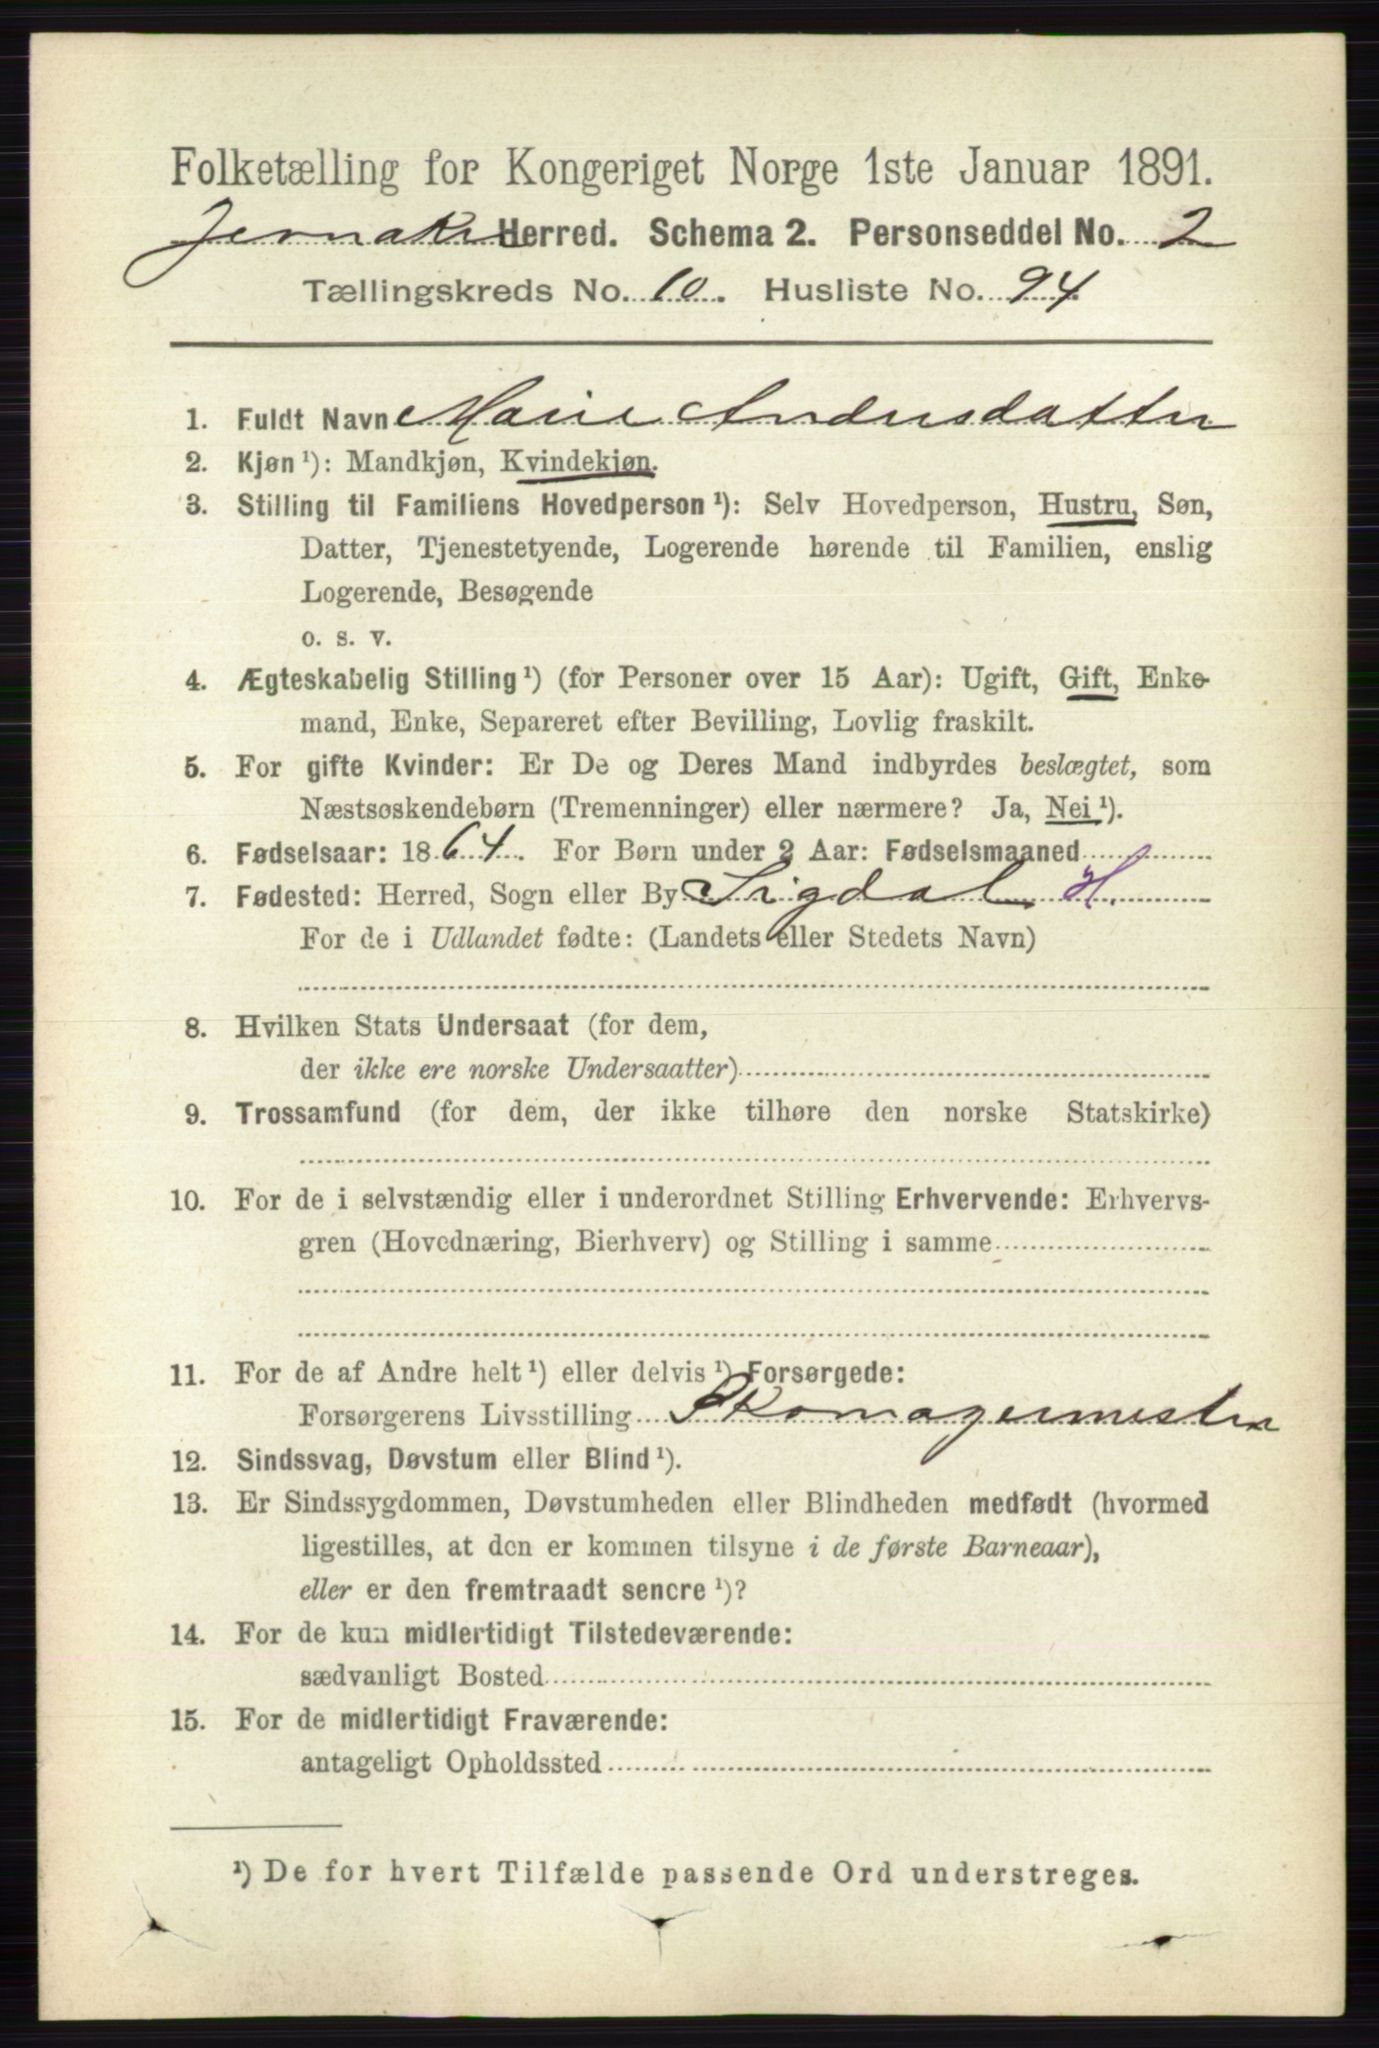 Folketælling for Kongeriget Norge 1ste Januar 1891.
Jevnaker Herred. Schema 2. Personseddel No. 2
Tællingskreds No. 10. Husliste No. 94.
1. Fuldt Navn Marie Andersdatter
2. Kjøn ¹): Mandkjøn, Kvindekjøn.
3. Stilling til Familiens Hovedperson ¹): Selv Hovedperson, Hustru, Søn,
Datter, Tjenestetyende, Logerende hørende til Familien, enslig
Logerende, Besøgende
o. s. v.
4. Ægteskabelig Stilling ¹) (for Personer over 15 Aar): Ugift, Gift, Enke-
mand, Enke, Separeret efter Bevilling, Lovlig fraskilt.
5. For gifte Kvinder: Er De og Deres Mand indbyrdes beslægtet, som
Næstsøskendebørn (Tremenninger) eller nærmere? Ja, Nei ¹).
6. Fødselsaar: 1864. For Børn under 2 Aar: Fødselsmaaned
7. Fødested: Herred, Sogn eller By Sigdal H.
For de i Udlandet fødte: (Landets eller Stedets Navn)
8. Hvilken Stats Undersaat (for dem,
der ikke ere norske Undersaatter)
9. Trossamfund (for dem, der ikke tilhøre den norske Statskirke)
10. For de i selvstændig eller i underordnet Stilling Erhvervende: Erhvervs-
gren (Hovednæring, Bierhverv) og Stilling i samme
11. For de af Andre helt ¹) eller delvis ¹) Forsørgede:
Forsørgerens Livsstilling Skomagermester
12. Sindssvag, Døvstum eller Blind ¹).
13. Er Sindssygdommen, Døvstumheden eller Blindheden medfødt (hvormed
ligestilles, at den er kommen tilsyne i de første Barneaar),
eller er den fremtraadt senere ¹)?
14. For de kun midlertidigt Tilstedeværende:
sædvanligt Bosted
15. For de midlertidigt Fraværende:
antageligt Opholdssted
¹) De for hvert Tilfælde passende Ord understreges.